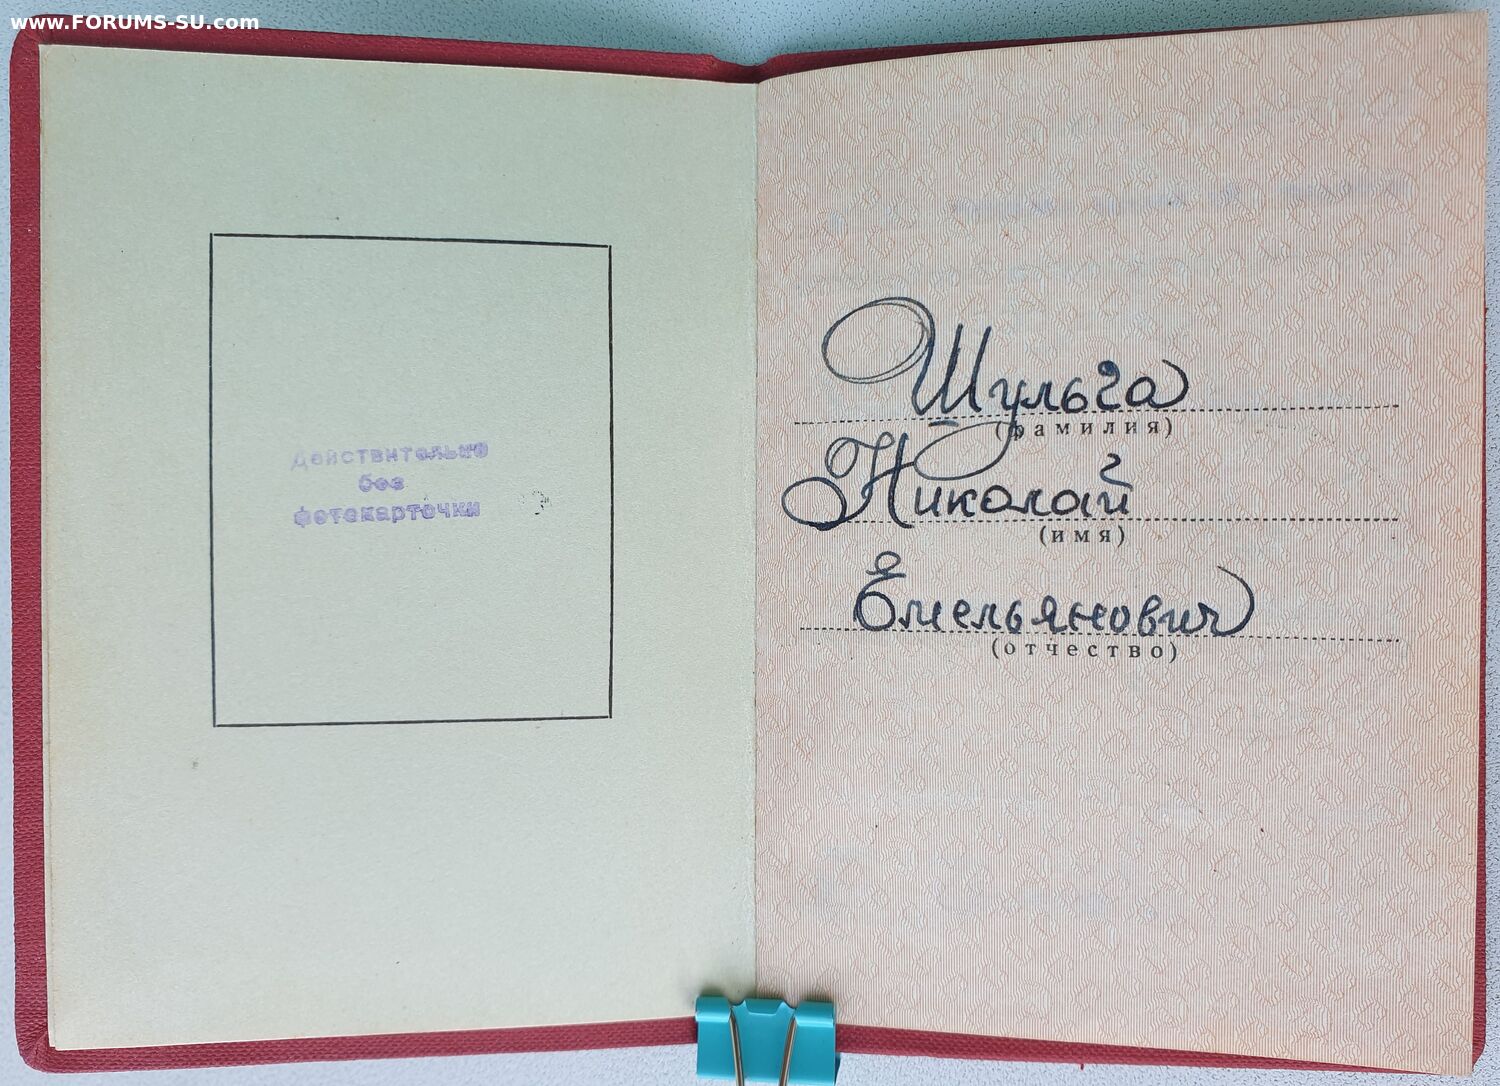 www.FORUMS-SU.com
Действительно
без
фотокарточки
Шульга
(фамилия)
Николай
(имя)
Емельянович
(отчество)